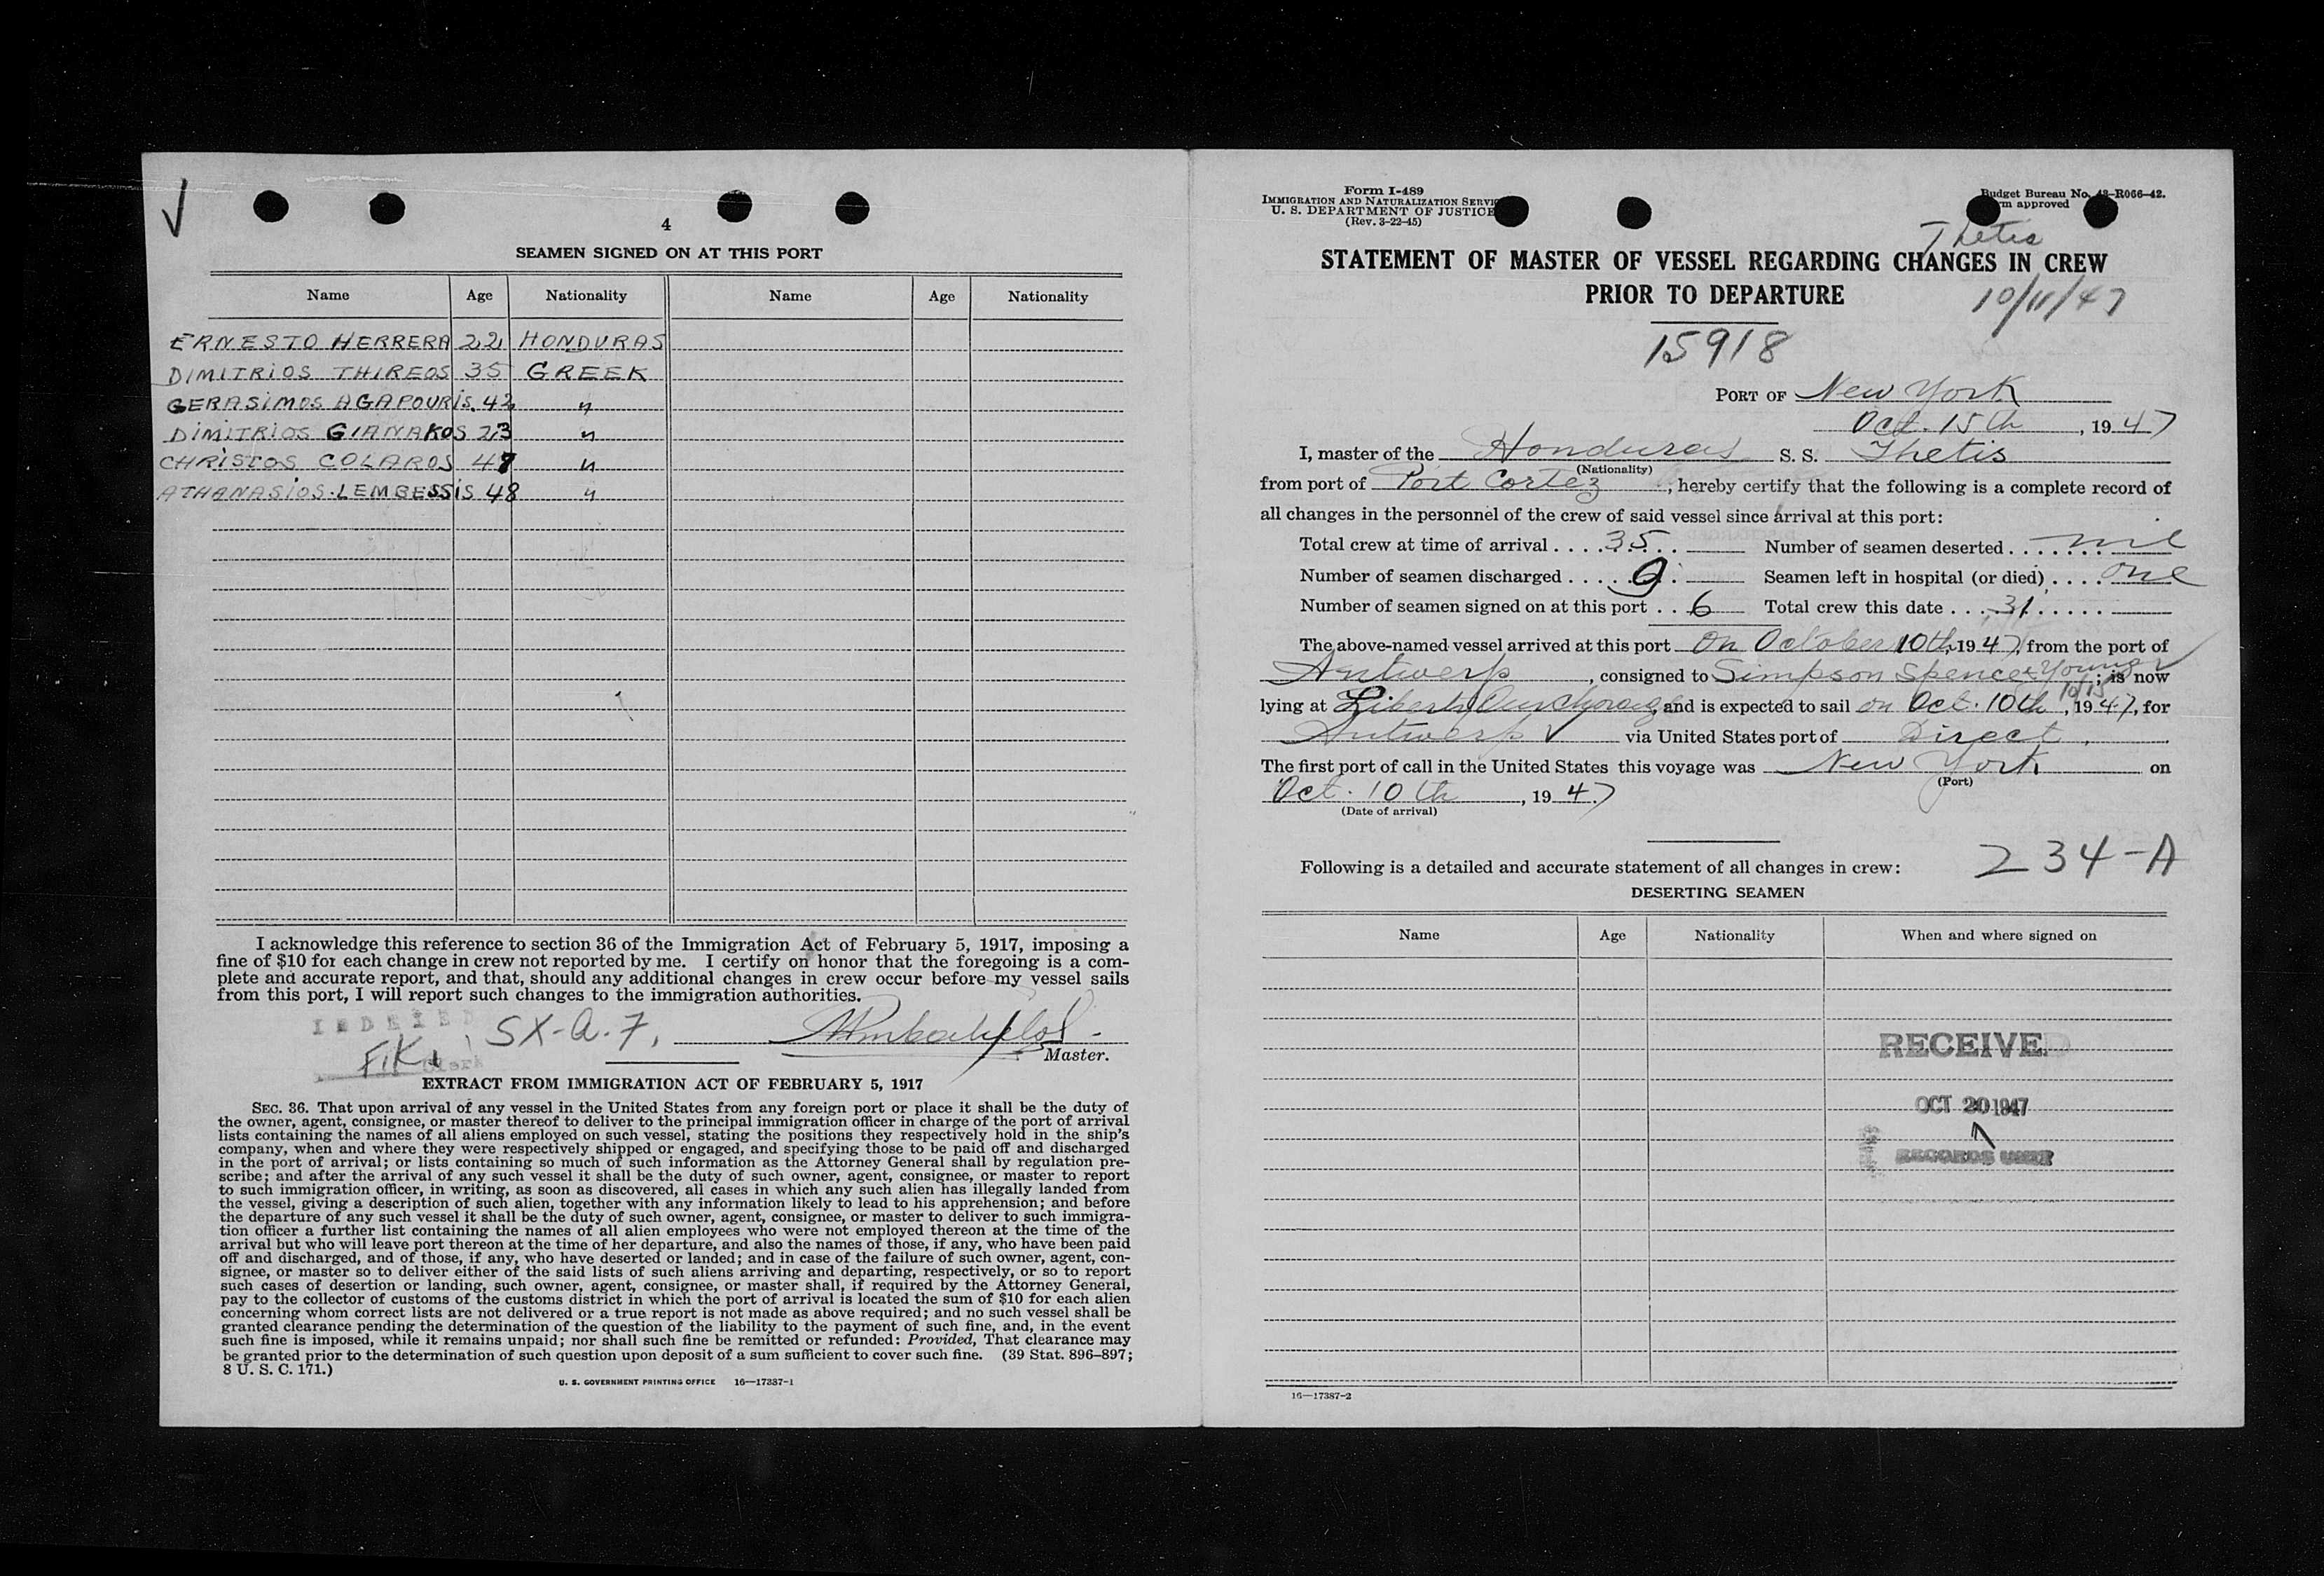 4
SEAMEN SIGNED ON AT THIS PORT
Name Age Nationality Name Age Nationality
ERNESTO HERRERA 22 HONDURAS
DIMITRIOS THIREOS 35 GREEK
GERASIMOS AGAPOURIS. 42 "
DIMITRIOS GIANAKOS 23 "
CHRISTOS COLAROS 47 "
ATHANASIOS. LEMBESSIS 48 "
I acknowledge this reference to section 36 of the Immigration Act of February 5, 1917, imposing a
fine of $10 for each change in crew not reported by me. I certify on honor that the foregoing is a com-
plete and accurate report, and that, should any additional changes in crew occur before my vessel sails
from this port, I will report such changes to the immigration authorities.
INDEXED SX-a.7.
F.K. Clerk
Master.
EXTRACT FROM IMMIGRATION ACT OF FEBRUARY 5, 1917
SEC. 36. That upon arrival of any vessel in the United States from any foreign port or place it shall be the duty of
the owner, agent, consignee, or master thereof to deliver to the principal immigration officer in charge of the port of arrival
lists containing the names of all aliens employed on such vessel, stating the positions they respectively hold in the ship's
company, when and where they were respectively shipped or engaged, and specifying those to be paid off and discharged
in the port of arrival; or lists containing so much of such information as the Attorney General shall by regulation pre-
scribe; and after the arrival of any such vessel it shall be the duty of such owner, agent, consignee, or master to report
to such immigration officer, in writing, as soon as discovered, all cases in which any such alien has illegally landed from
the vessel, giving a description of such alien, together with any information likely to lead to his apprehension; and before
the departure of any such vessel it shall be the duty of such owner, agent, consignee, or master to deliver to such immigra-
tion officer a further list containing the names of all alien employees who were not employed thereon at the time of the
arrival but who will leave port thereon at the time of her departure, and also the names of those, if any, who have been paid
off and discharged, and of those, if any, who have deserted or landed; and in case of the failure of such owner, agent, con-
signee, or master so to deliver either of the said lists of such aliens arriving and departing, respectively, or so to report
such cases of desertion or landing, such owner, agent, consignee, or master shall, if required by the Attorney General,
pay to the collector of customs of the customs district in which the port of arrival is located the sum of $10 for each alien
concerning whom correct lists are not delivered or a true report is not made as above required; and no such vessel shall be
granted clearance pending the determination of the question of the liability to the payment of such fine, and, in the event
such fine is imposed, while it remains unpaid; nor shall such fine be remitted or refunded: Provided, That clearance may
be granted prior to the determination of such question upon deposit of a sum sufficient to cover such fine. (39 Stat. 896–897;
8 U. S. C. 171.)
U. S. GOVERNMENT PRINTING OFFICE 16—17387-1
Form I-489
IMMIGRATION AND NATURALIZATION SERVIC
U. S. DEPARTMENT OF JUSTICE
(Rev. 3-22-45)
Budget Bureau No. 43-R066-42.
rm approved
Thetis
STATEMENT OF MASTER OF VESSEL REGARDING CHANGES IN CREW
PRIOR TO DEPARTURE
10/11/47
15918
PORT OF New York
Oct. 15th, 1947
I, master of the Honduras S. S. Thetis
(Nationality)
from port of Port Cortez, hereby certify that the following is a complete record of
all changes in the personnel of the crew of said vessel since arrival at this port:
Total crew at time of arrival .... 35 Number of seamen deserted ....... nil
Number of seamen discharged .... 9 Seamen left in hospital (or died) .... one
Number of seamen signed on at this port .. 6 Total crew this date ... 31
The above-named vessel arrived at this port on October 10th, 1947, from the port of
Antwerp, consigned to Simpson Spence & Young; is now
10/15
lying at Liberty Anchorage, and is expected to sail on Oct. 10th, 1947, for
Antwerp via United States port of Direct.
The first port of call in the United States this voyage was New York on
(Port)
Oct. 10th, 1947
(Date of arrival)
234-A
Following is a detailed and accurate statement of all changes in crew:
DESERTING SEAMEN
Name Age Nationality When and where signed on
RECEIVED
OCT 20 1947
RECORDS UNIT
16—17387-2